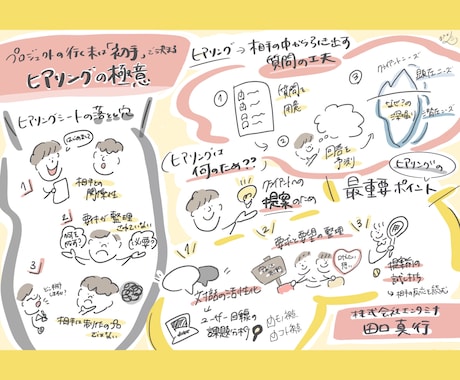 プロジェクトの行く末は「初手」で決まる
ヒアリングの極意
ヒアリングシートの落とし穴
はじめまして
1
相手との
関係性
2
要件が整理
されていない
必要?
3
相手に
ヒアリング→相手の中から引き出す
質問の工夫
1
質問を
用意
2
回答を
予測
3
クライアントニーズ
顕在ニーズ
なぜ?の
深堀り
潜在ニーズ
ヒアリングは
何のため??
クライアントへの
提案のため
ヒアリングの
最重要ポイント
1
対話の活性化
ユーザー目線の
課題分析
2
要求と要望の整理
3
株式会社エンタミナ
田口真行